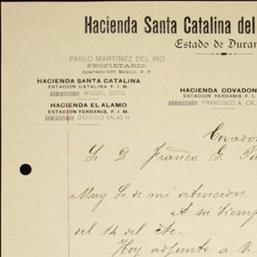 Hacienda Santa Catalina del
Estado de Duran
PABLO MARTINEZ DEL RIO
PROPIETARIO.
Apartado 285 México, D. F.
HACIENDA SANTA CATALINA
ESTACION CATALINA F. I. M.
Administrador MIGUEL SOTO.
HACIENDA COVADON
ESTACION YERBANIS F. I. M.
Administrador FRANCISCO A. CAL
HACIENDA EL ALAMO
ESTACION YERBANIS, F. I. M.
Administrador DIONISIO SALAS H
Covado
Sr. D. Franco G.
Muy Sr. de mi atencion
A su tiemp
del 14 del
Hoy adjunto a V.